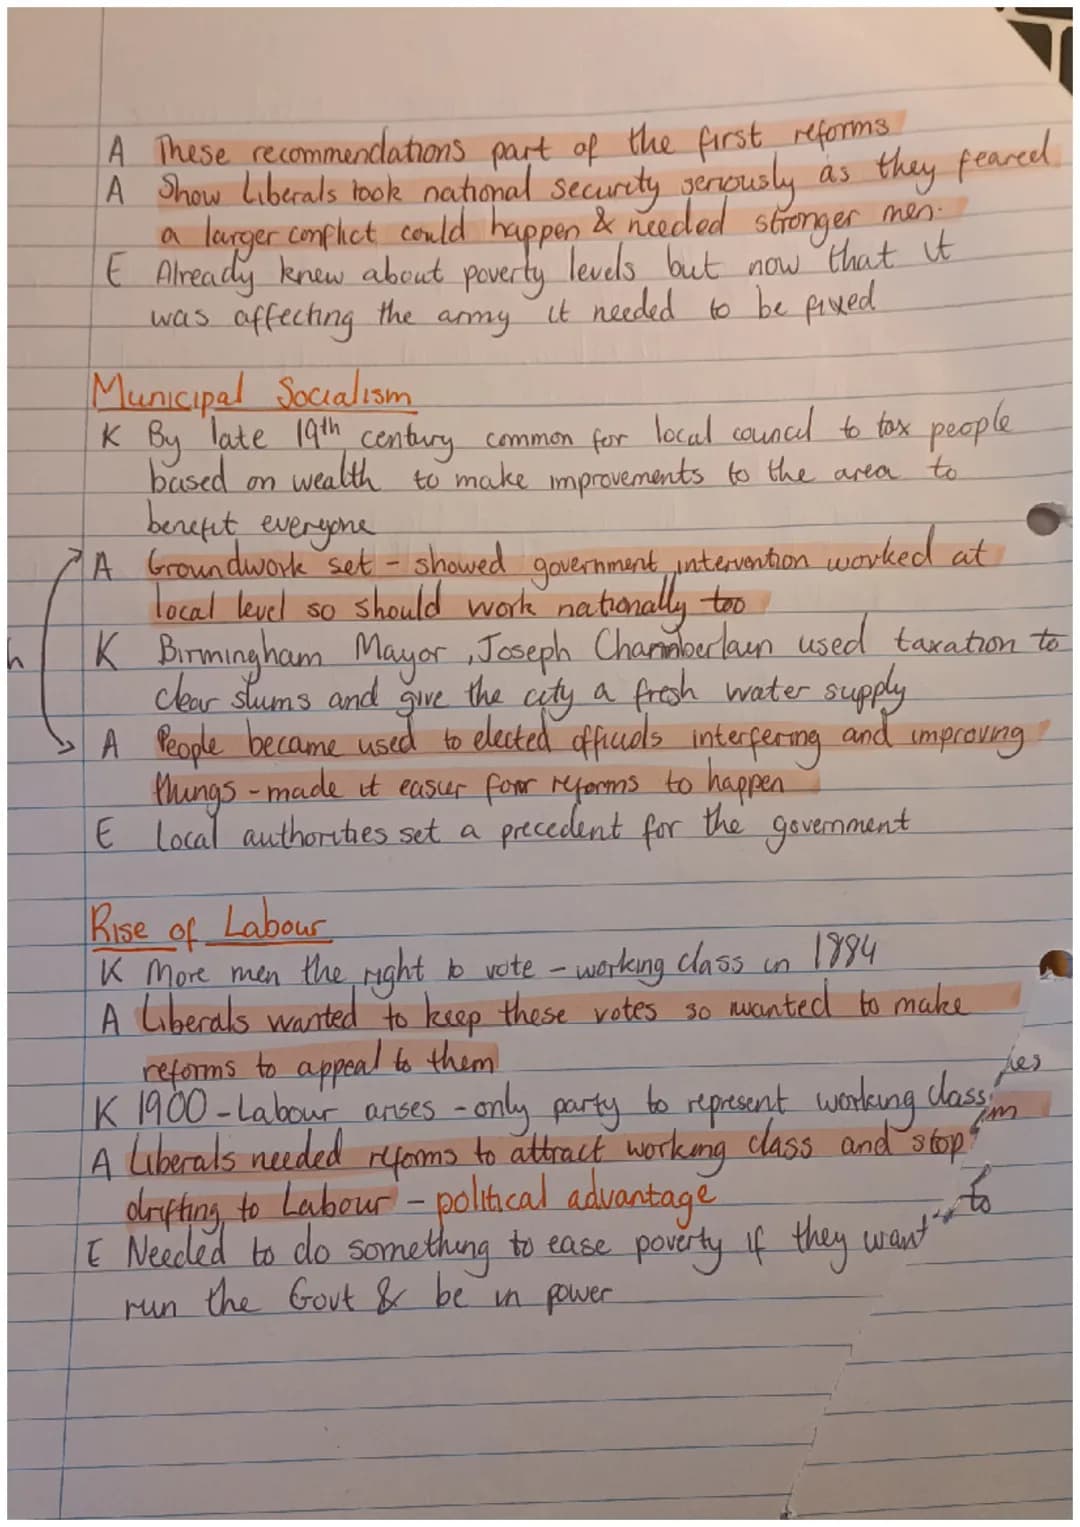 A These recommendations part of the first reforms
A Show Liberals took national security seriously as they feared
a larger conflict could happen & needed stronger men.
E Already knew about poverty levels but now that it
was affecting the army it needed to be fixed
Municipal Socialism
K By late 19th century common for local council to tax people
based on wealth to make improvements to the area to
benefit everyone
A Groundwork set - showed government intervention worked at
local level so should work nationally too
h
K Birmingham Mayor, Joseph Chamberlain used taxation to
clear slums and give the city a fresh water supply
A People became used to elected officials interfering and improving
things - made it easier for reforms to happen
E Local authorities set a precedent for the government
Rise of Labour
K More men the right to vote - working class in 1884
A Liberals wanted to keep these votes so wanted to make
reforms to appeal to them
K 1900 - Labour arises - only party to represent working class
A Liberals needed reforms to attract working class and stop
drifting to Labour - political advantage
E Needed to do something to ease poverty if they want to
run the Govt & be in power